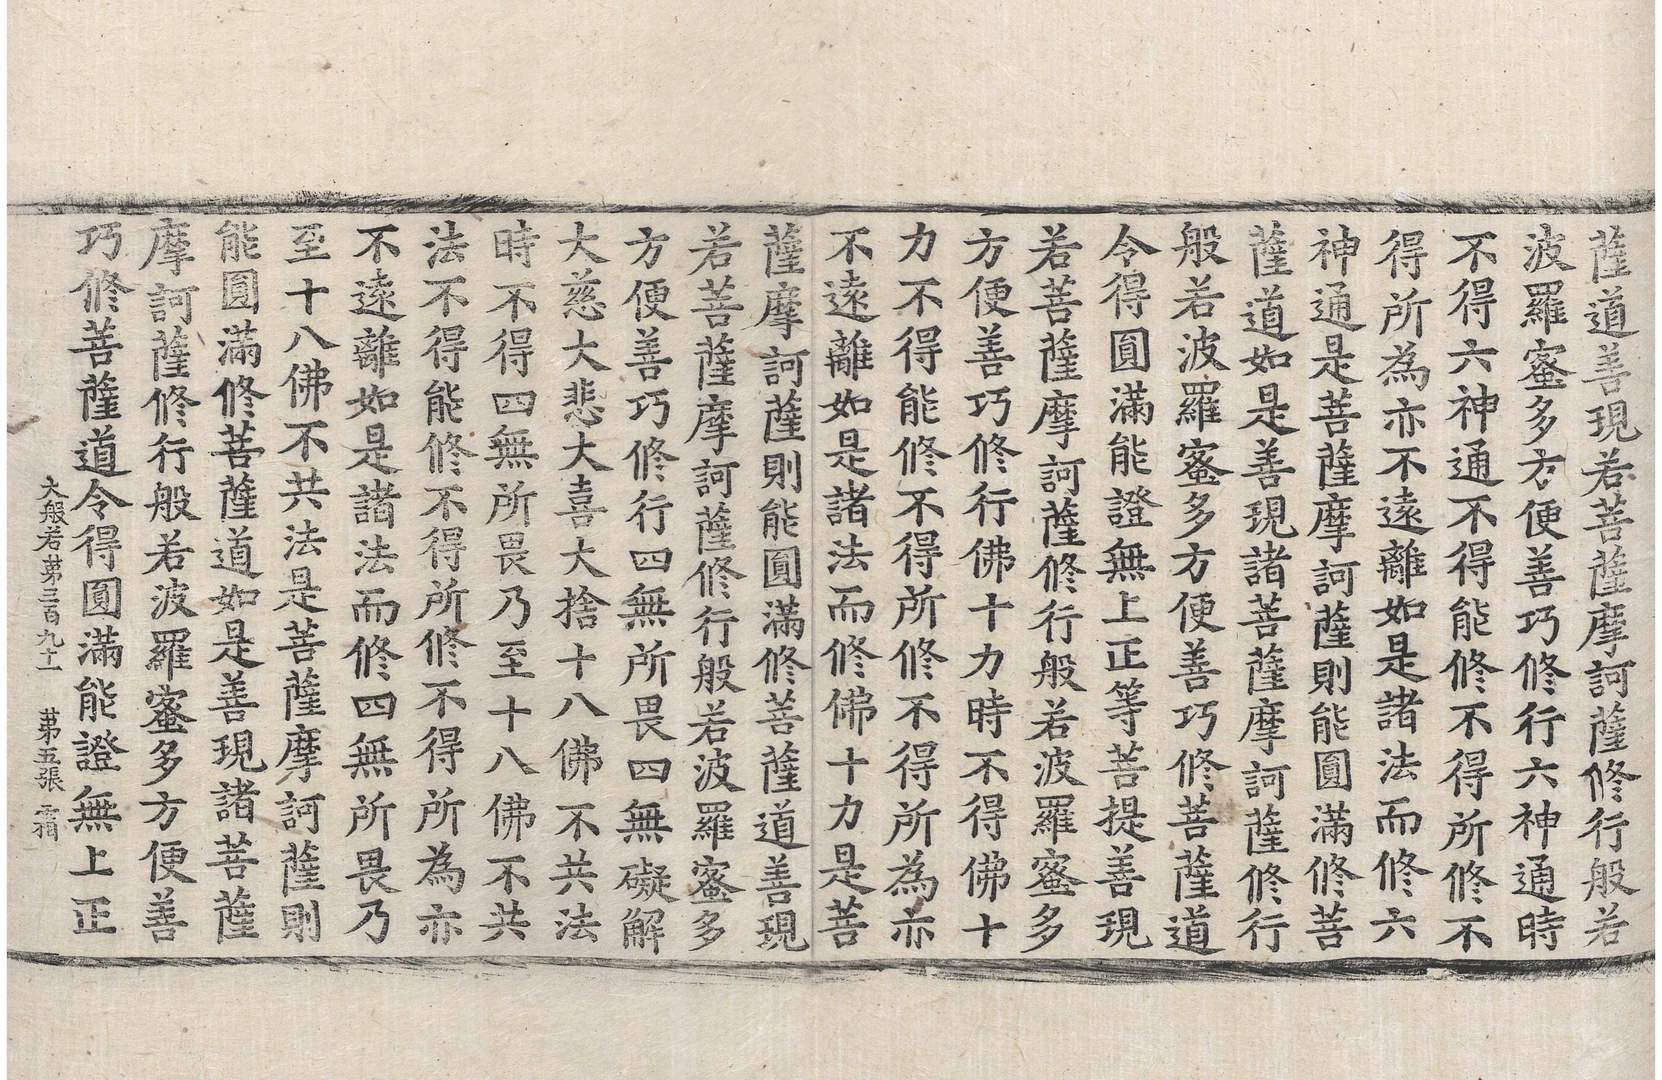 薩道善現若菩薩摩訶薩修行般若
波羅蜜多方便善巧修行六神通時
不得六神通不得能修不得所修不
得所為亦不遠離如是諸法而修六
神通是菩薩摩訶薩則能圓滿修菩
薩道如是善現諸菩薩摩訶薩修行
般若波羅蜜多方便善巧修菩薩道
令得圓滿能證無上正等菩提善現
若菩薩摩訶薩修行般若波羅蜜多
方便善巧修行佛十力時不得佛十
力不得能修不得所修不得所為亦
不遠離如是諸法而修佛十力是菩
薩摩訶薩則能圓滿修菩薩道善現
若菩薩摩訶薩修行般若波羅蜜多
方便善巧修行四無所畏四無礙解
大慈大悲大喜大捨十八佛不共法
時不得四無所畏乃至十八佛不共
法不得能修不得所修不得所為亦
不遠離如是諸法而修四無所畏乃
至十八佛不共法是菩薩摩訶薩則
能圓滿修菩薩道如是善現諸菩薩
摩訶薩修行般若波羅蜜多方便善
巧修菩薩道令得圓滿能證無上正
大般若第三百九十一 第五張 霜